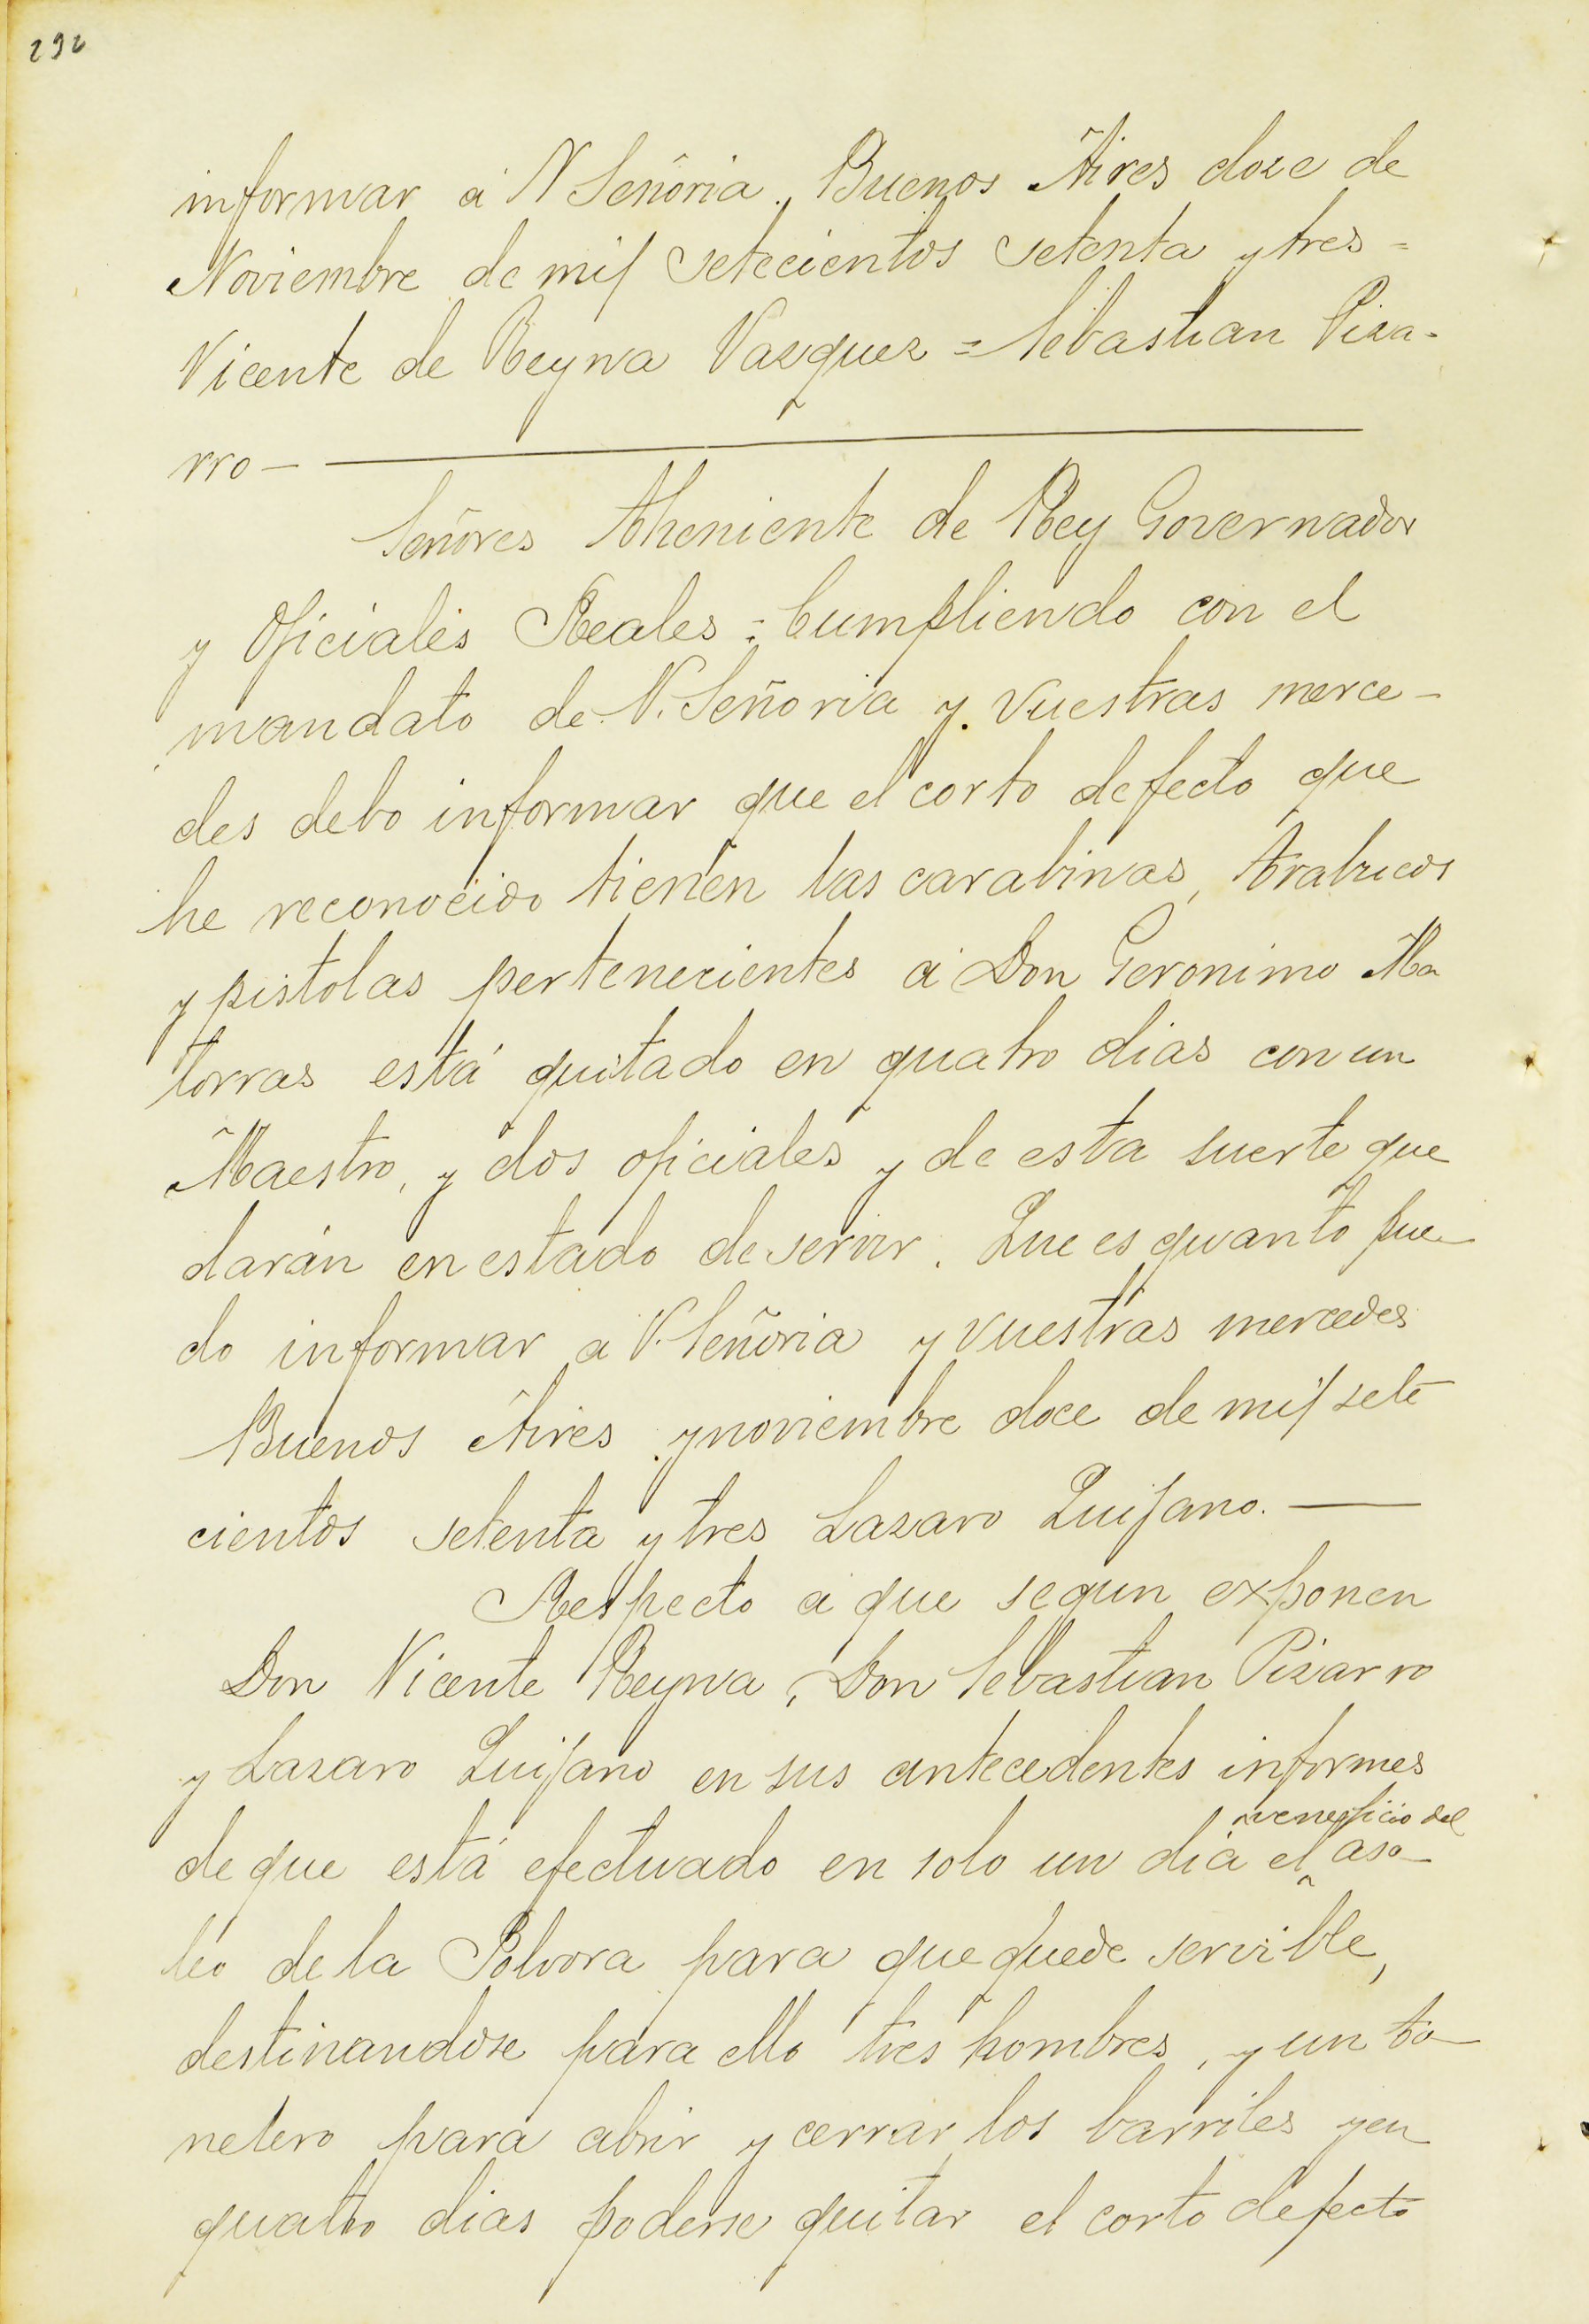 292
informar á V Señoria. Buenos Aires doze de
Noviembre de mil setecientos setenta y tres =
Vicente de Reyna Vazquez = Sebastian Piza-
rro —
Señores Theniente de Rey Governador
y Oficiales Reales = Cumpliendo con el
mandato de V. Señoria y vuestras merce-
des debo informar que el corto defecto que
he reconocido tienen las carabinas, trabucos
y pistolas pertenecientes á Don Geronimo Ma
torras está quitado en quatro dias con un
Maestro, y dos oficiales y de esta suerte que
darán en estado de servir. Que es quanto pue-
do informar a V. Señoria y vuestras mercedes
Buenos Aires y noviembre doce de mil sete
cientos setenta y tres Lazaro Quijano. —
Respecto á que segun exponen
Don Vicente Reyna, Don Sebastian Pizarro
y Lazaro Quijano en sus antecedentes informes
veneficio del
de que está efectuado en solo un dia el aso-
léo de la Polvora para que quede servible,
destinandose para ello tres hombres, y un to-
nelero para abrir y cerrar los barriles y en
quatro dias poderse quitar el corto defecto